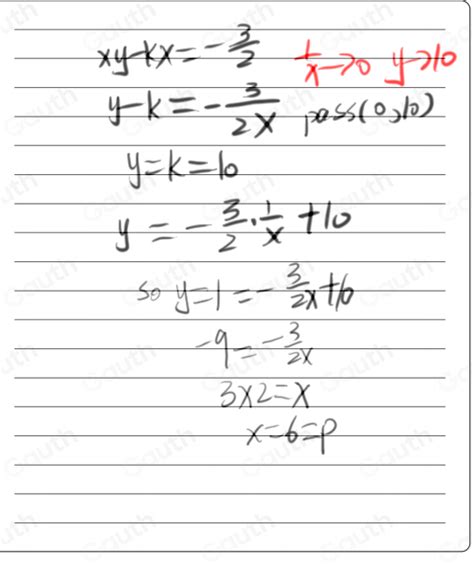 xy-kx=-3/2 1/x→0 y→10
y-k=-3/2x pass(0,10)
y=k=10
y=-3/2·1/x+10
so y=1=-3/2x+10
-9=-3/2x
3x2=x
x=6=p